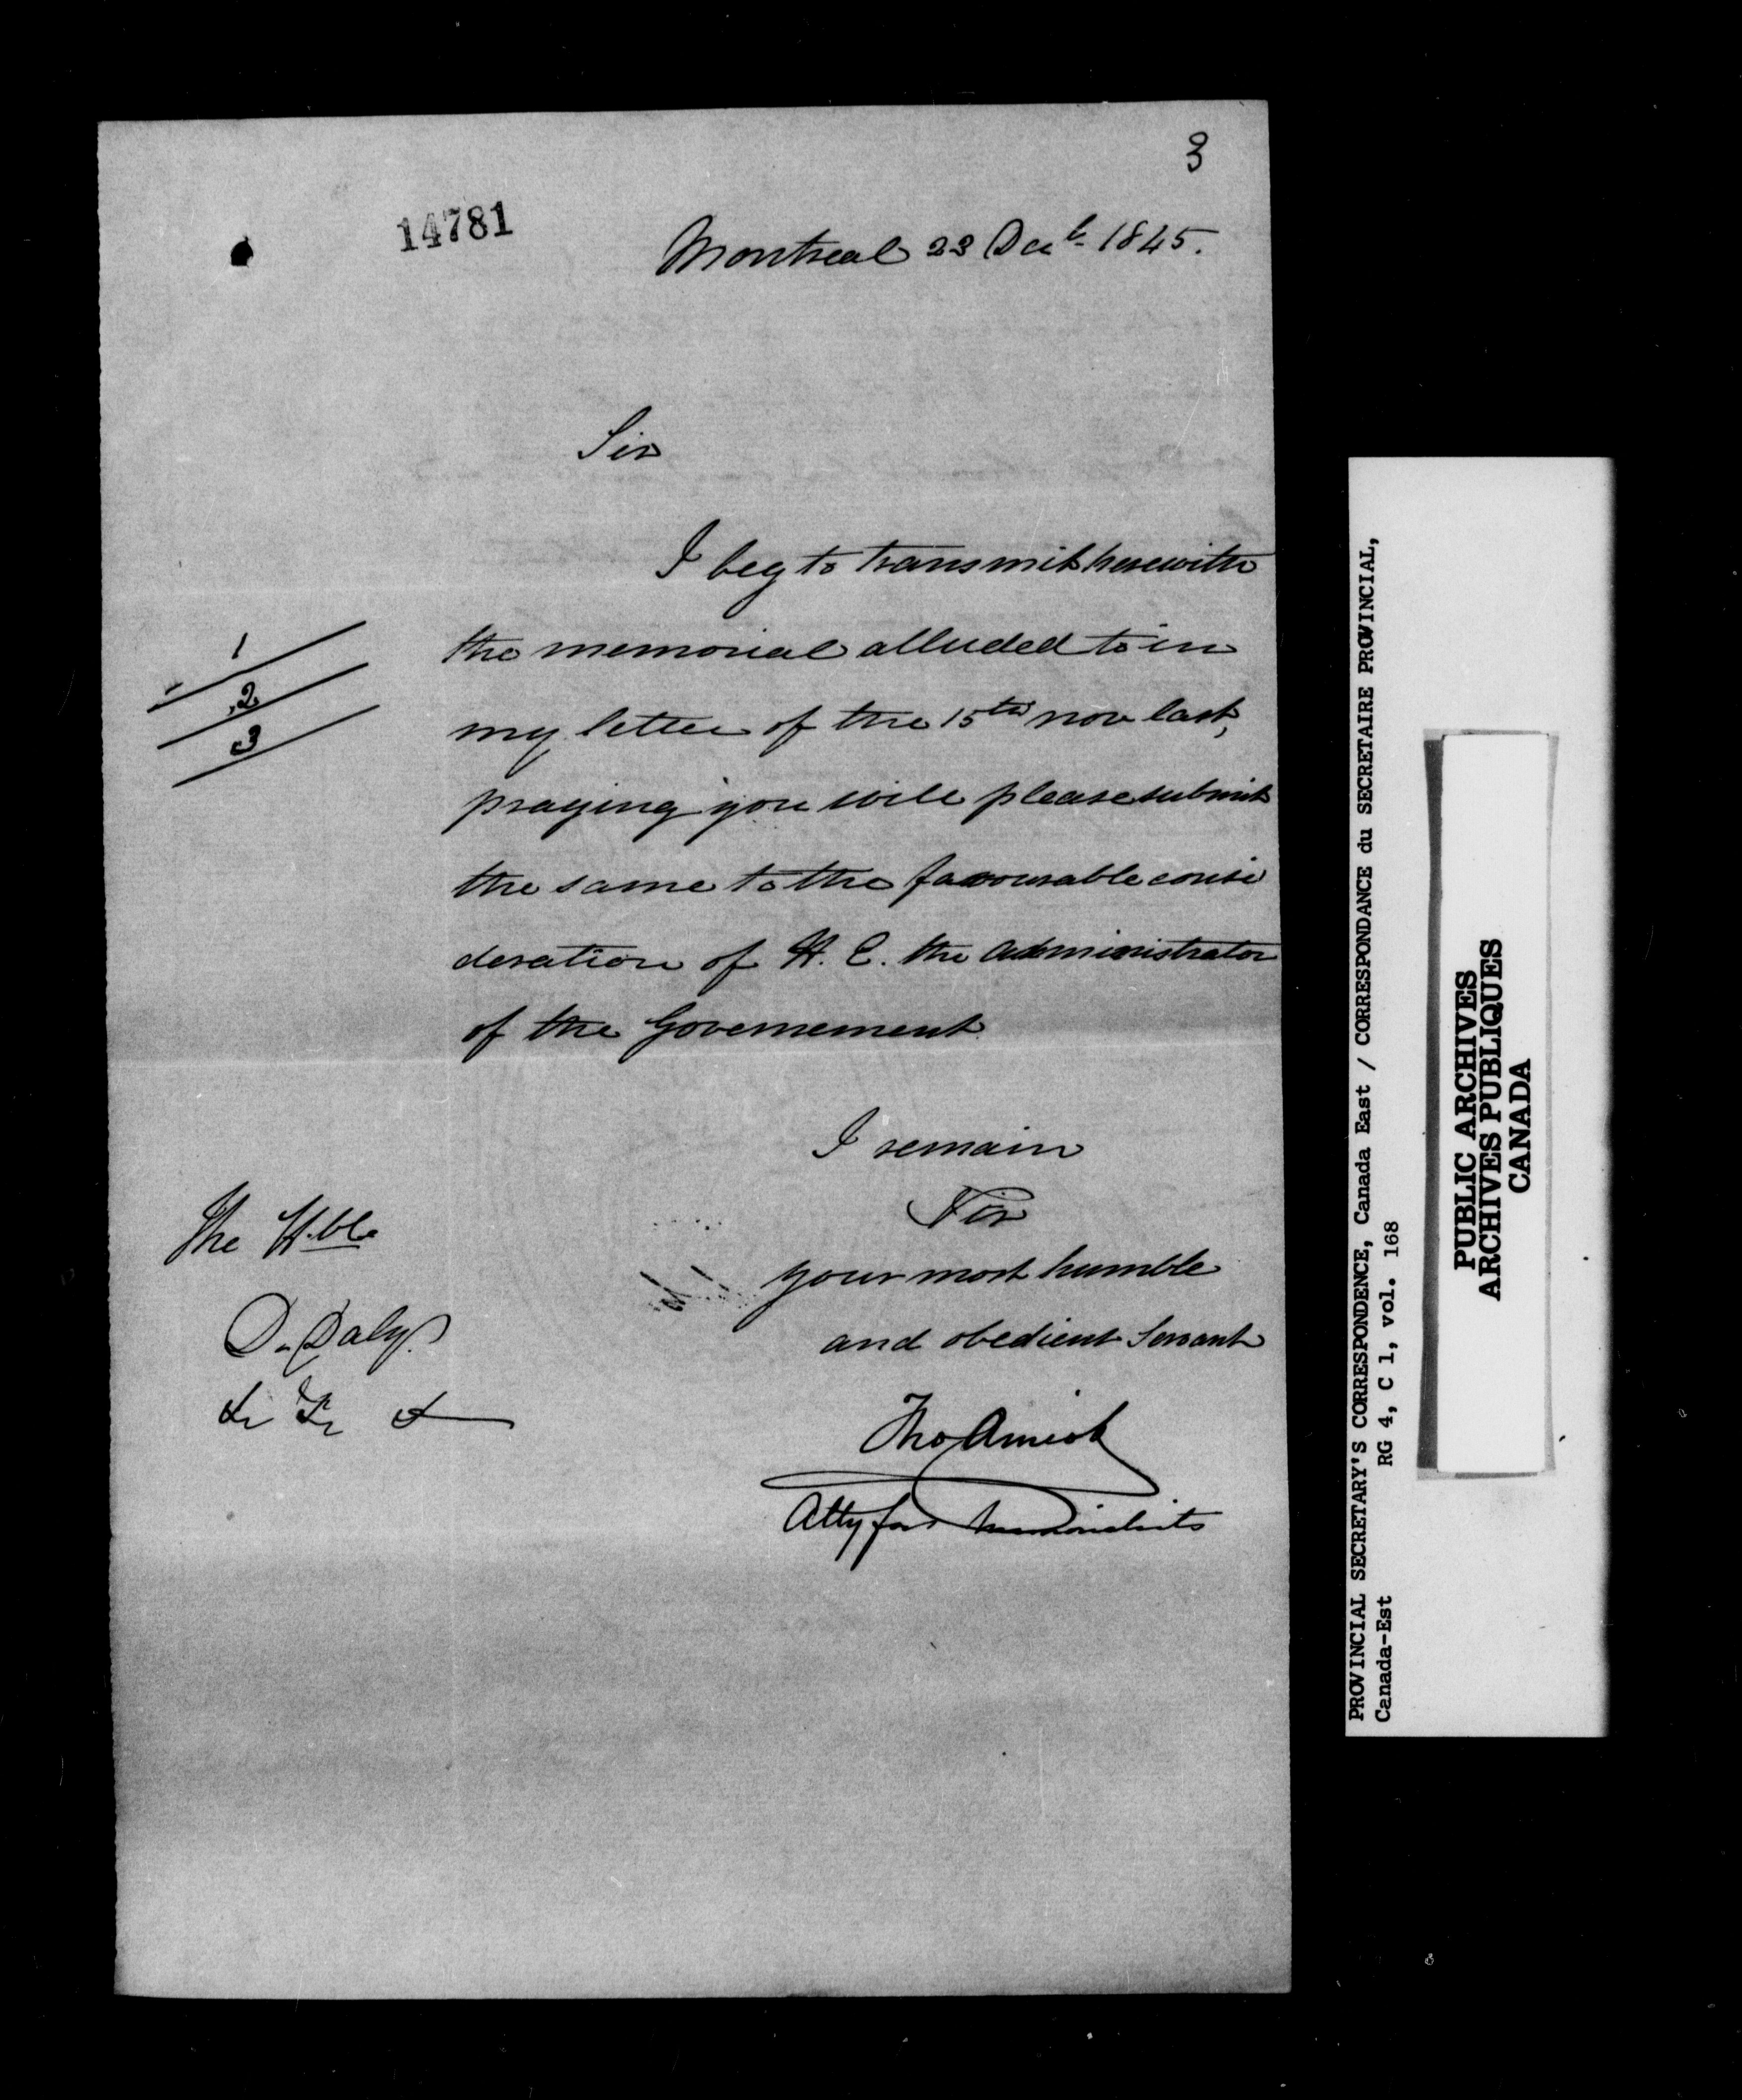 3
14781
Montreal 23 Decb. 1845.
Sir
I beg to transmit herewith
the memorial alluded to in
my letter of the 15th nov last,
praying you will please submit
the same to the favourable consi
deration of H. E. the Administrator
of the Governement
1
2
3
I remain
Sir
your most humble
and obedient Servant
Tho Amiot
Atty for memorialists
The H.ble
D. Daly
&c &c &
PROVINCIAL SECRETARY'S CORRESPONDENCE, Canada East / CORRESPONDANCE du SECRETAIRE PROVINCIAL,
Canada-Est RG 4, C 1, vol. 168
PUBLIC ARCHIVES
ARCHIVES PUBLIQUES
CANADA